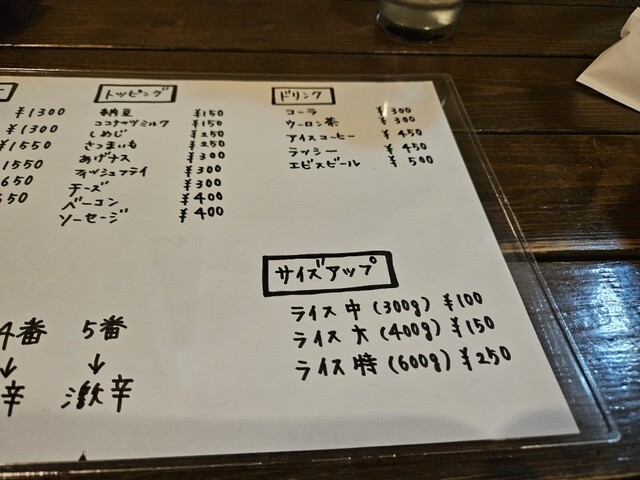 ¥1300
¥1300
¥1550
1550
650
550
トッピング
納豆 ¥150
ココナッツミルク ¥150
しめじ ¥250
さつまいも ¥250
あげナス ¥300
フィッシュフライ ¥300
チーズ ¥300
ベーコン ¥400
ソーセージ ¥400
ドリンク
コーラ ¥300
ウーロン茶 ¥300
アイスコーヒー ¥450
ラッシー ¥450
エビスビール ¥500
サイズアップ
ライス中(300g) ¥100
ライス大(400g) ¥150
ライス特(600g) ¥250
4番 5番
↓ ↓
辛 激辛